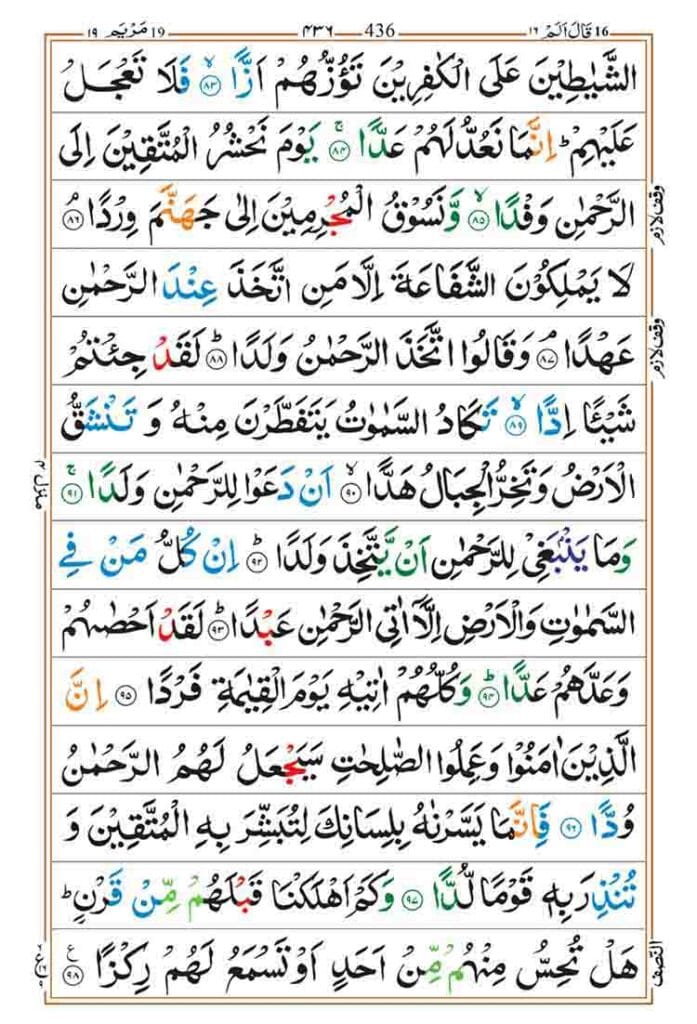 16 قَالَ اَلَمْ ۱۶
436 ۴۳۶
19 مَرْيَم ۱۹
الشَّيٰطِيْنَ عَلَى الْكٰفِرِيْنَ تَؤُزُّهُمْ اَزًّا ۙ﴿۸۳﴾ فَلَا تَعْجَلْ
عَلَيْهِمْ ؕ اِنَّمَا نَعُدُّ لَهُمْ عَدًّا ۚ﴿۸۴﴾ يَوْمَ نَحْشُرُ الْمُتَّقِيْنَ اِلَى
الرَّحْمٰنِ وَفْدًا ۙ﴿۸۵﴾ وَّنَسُوْقُ الْمُجْرِمِيْنَ اِلٰى جَهَنَّمَ وِرْدًا ۘ﴿۸۶﴾
وقف لازم
لَا يَمْلِكُوْنَ الشَّفَاعَةَ اِلَّا مَنِ اتَّخَذَ عِنْدَ الرَّحْمٰنِ
عَهْدًا ۘ﴿۸۷﴾ وَقَالُوا اتَّخَذَ الرَّحْمٰنُ وَلَدًا ؕ﴿۸۸﴾ لَقَدْ جِئْتُمْ
وقف لازم
شَيْـًٔا اِدًّا ۙ﴿۸۹﴾ تَكَادُ السَّمٰوٰتُ يَتَفَطَّرْنَ مِنْهُ وَ تَنْشَقُّ
الْاَرْضُ وَتَخِرُّ الْجِبَالُ هَدًّا ۙ﴿۹۰﴾ اَنْ دَعَوْا لِلرَّحْمٰنِ وَلَدًا ۚ﴿۹۱﴾
منزل ۴
وَمَا يَنْۢبَغِيْ لِلرَّحْمٰنِ اَنْ يَّتَّخِذَ وَلَدًا ؕ﴿۹۲﴾ اِنْ كُلُّ مَنْ فِي
السَّمٰوٰتِ وَالْاَرْضِ اِلَّاۤ اٰتِي الرَّحْمٰنِ عَبْدًا ؕ﴿۹۳﴾ لَقَدْ اَحْصٰىهُمْ
وَعَدَّهُمْ عَدًّا ؕ﴿۹۴﴾ وَكُلُّهُمْ اٰتِيْهِ يَوْمَ الْقِيٰمَةِ فَرْدًا ﴿۹۵﴾ اِنَّ
الَّذِيْنَ اٰمَنُوْا وَعَمِلُوا الصّٰلِحٰتِ سَيَجْعَلُ لَهُمُ الرَّحْمٰنُ
وُدًّا ﴿۹۶﴾ فَاِنَّمَا يَسَّرْنٰهُ بِلِسَانِكَ لِتُبَشِّرَ بِهِ الْمُتَّقِيْنَ وَ
تُنْذِرَ بِهٖ قَوْمًا لُّدًّا ﴿۹۷﴾ وَكَمْ اَهْلَكْنَا قَبْلَهُمْ مِّنْ قَرْنٍ ؕ
هَلْ تُحِسُّ مِنْهُمْ مِّنْ اَحَدٍ اَوْ تَسْمَعُ لَهُمْ رِكْزًا ﴿۹۸﴾ ع
النصف